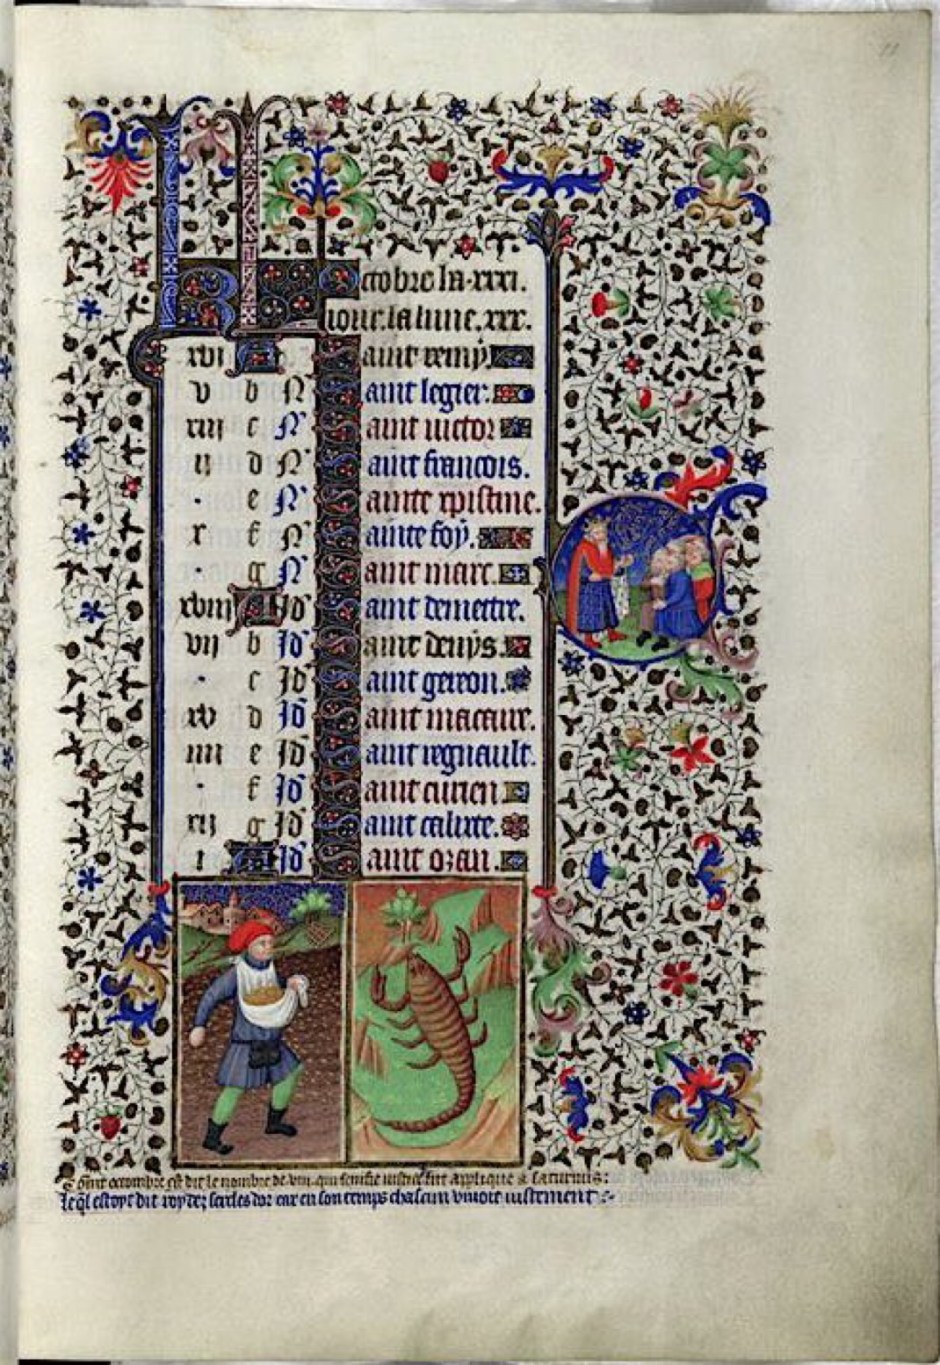 KL Octobre la .xxxi.
iour. la lune. xxx.
xvi A Saint remy.
v b N Saint legier.
xiii c N Saint victor
ii d N Saint francois.
. e N Sainte xpistine.
x f N Sainte foy.
. g N Saint marc.
xviii A Id Saint demettre.
vii b Id Saint denys.
. c Id Saint gereon.
xv d Id Saint macaire.
iiii e Id Saint regnault.
. f Id Saint curien
xii g Id Saint calixte.
i A Id Saint ozan.
Coment octombre est dit le nombre de viii. qui senefie iustice fut applique a saturnus:
le ql estoyt dit roy dez siecles dor car en son temps chascun vivoit iustement
11